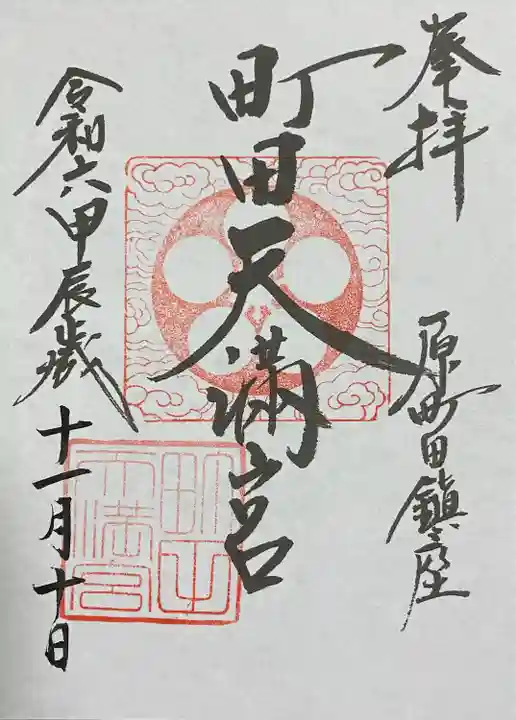 奉拝
原町田鎮座
町田天満宮
令和六甲辰歳十一月十日
町田天満宮